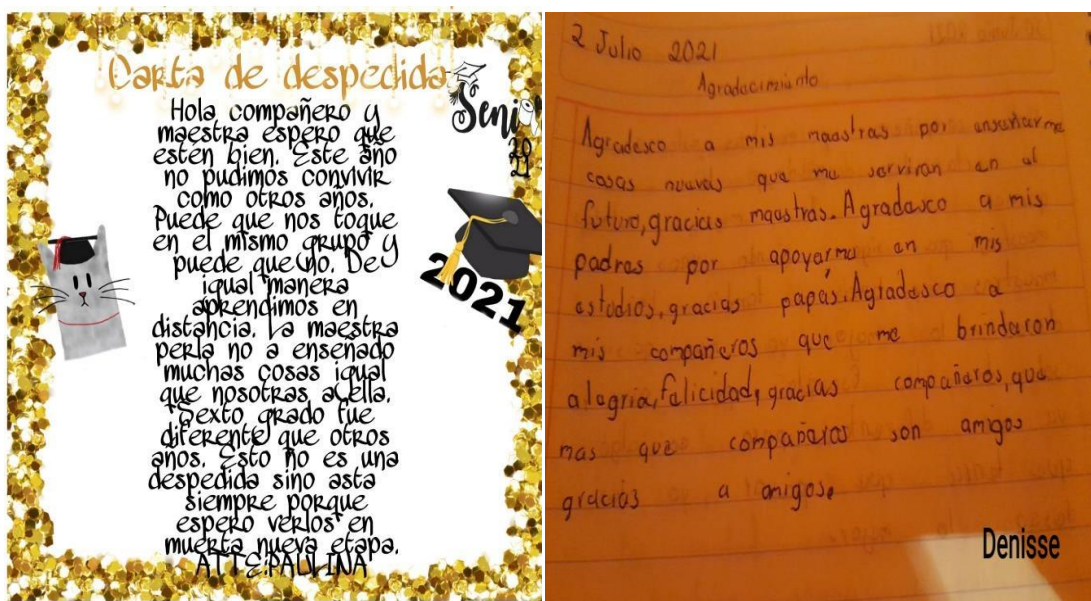 Carta de despedida
Hola compañero y
maestra espero que
esten bien. Este año
no pudimos convivir
como otros años.
Puede que nos toque
en el mismo grupo y
puede que no. De
igual manera
aprendimos en
distancia. La maestra
perla no a enseñado
muchas cosas igual
que nosotras a ella.
Sexto grado fue
diferente que otros
años. Esto no es una
despedida sino asta
siempre porque
espero verlos en
muerta nueva etapa.
ATTE:PAULINA
Seni
20
21
2021
2 Julio 2021
Agradecimiento
Agradesco a mis maestras por enseñarme
cosas nuevas que me serviran en el
futuro, gracias maestras. Agradesco a mis
padres por apoyarme en mis
estudios, gracias papás. Agradesco a
mis compañeros que me brindaron
alegria, felicidad, gracias compañeros, que
mas que compañeros son amigos
gracias a amigos.
Denisse